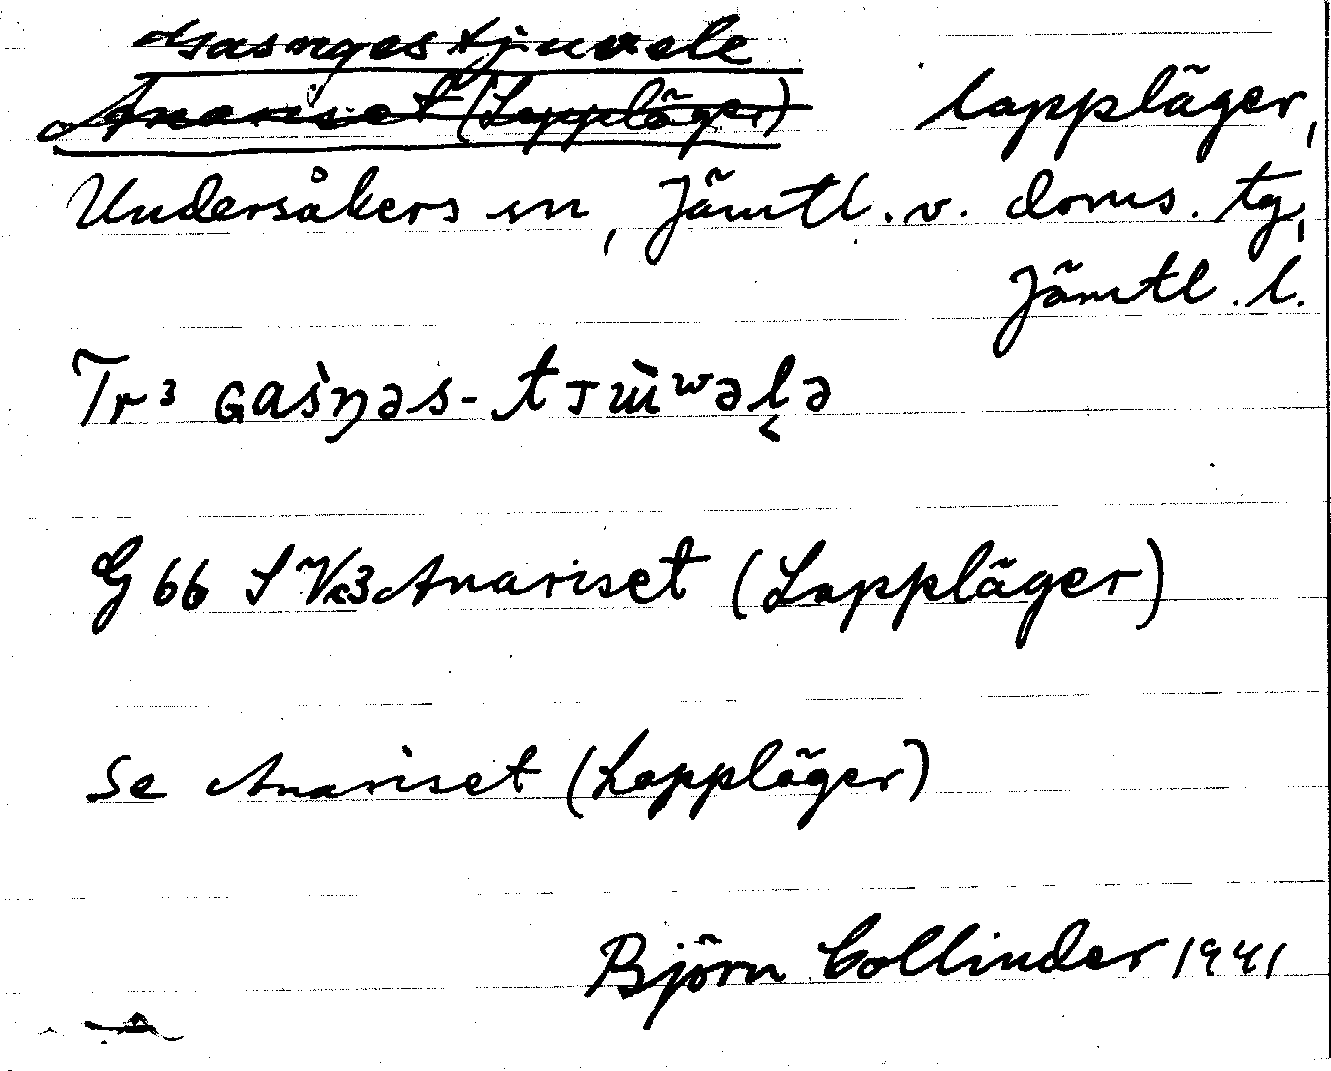 Gasngestjuvele
Anariset (Lappläger) lappläger,
Undersåkers sn, Jämtl. v. doms. tg,
Jämtl. l.
Tr 3 GAṡŋəs-tɪɯ̈ʷəl̬ə
G 66 S V k3 Anariset (Lappläger)
Se Anariset (Lappläger)
Björn Collinder 1941